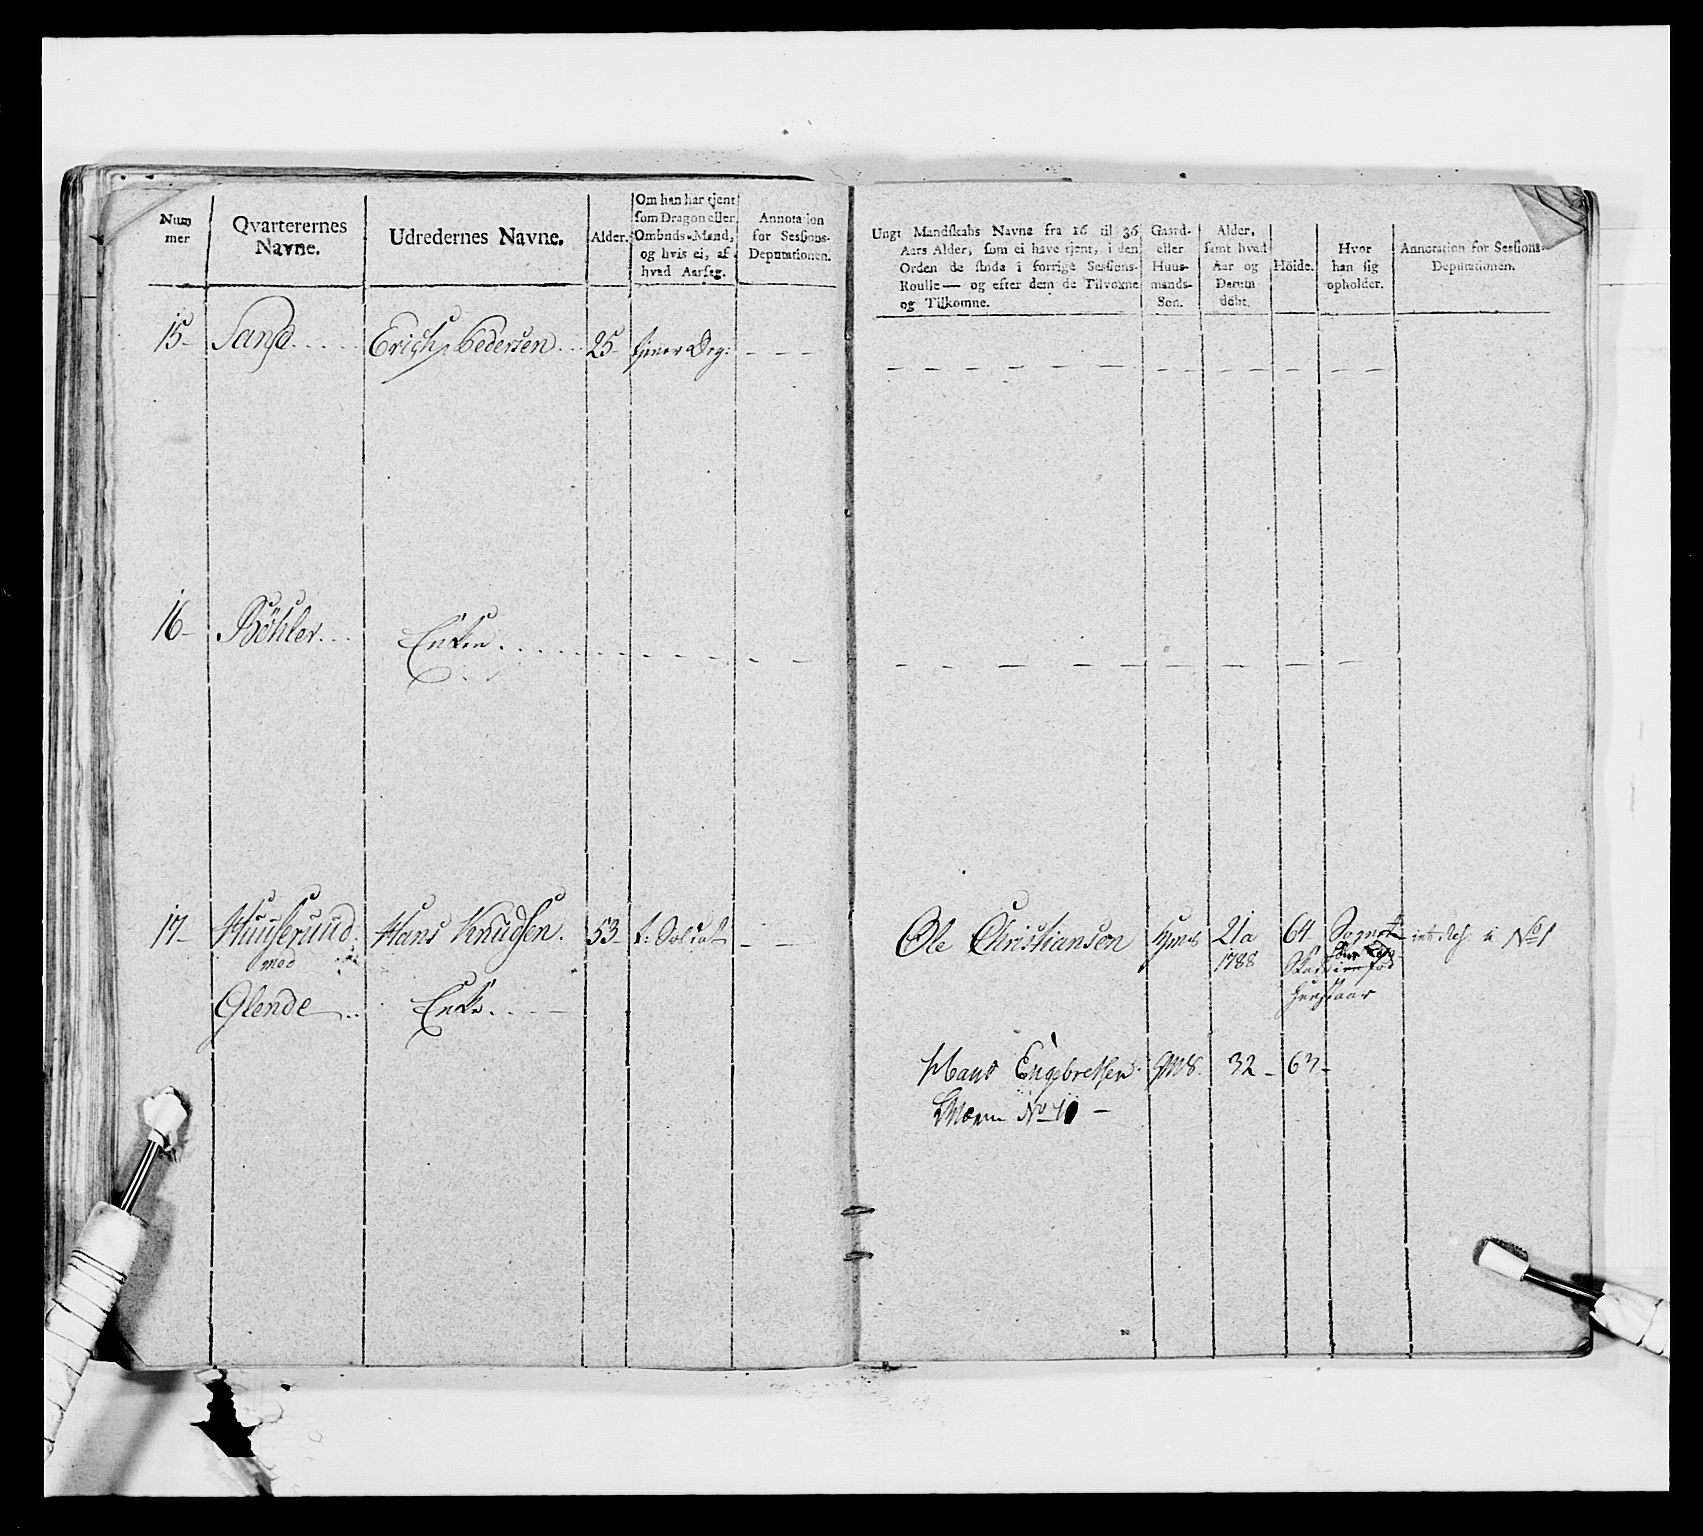 Num
mer
Qvarterernes
Navne.
Udredernes Navne.
Alder.
Om han har tjent
som Dragon eller
Ombuds-Mand,
og hvis ei, af
hvad Aarsag.
Annotation
for Sessions-
Deputationen.
Ungt Mandskabs Navne fra 16 til 36
Aars Alder, som ei have tjent, i den
Orden de stode i forrige Sessions-
Roulle — og efter dem de Tilvoxne
og Tilkomne.
Gaard-
eller
Huus-
mands-
Søn.
Alder,
samt hvad
Aar og
Datum
døbt.
Höide.
Hvor
han sig
opholder.
Annotation for Sessions-
Deputationen.
15 Sand Erich Pedersen 25 tjener Drg:
16 Böhler Enken
17 Huuserund Hans Knudsen 53 t. Soldat Ole Christiansen 21 64 No 1
med 1788
Glende Enke
Hans Engebretsen GMS. 32 63
No 10